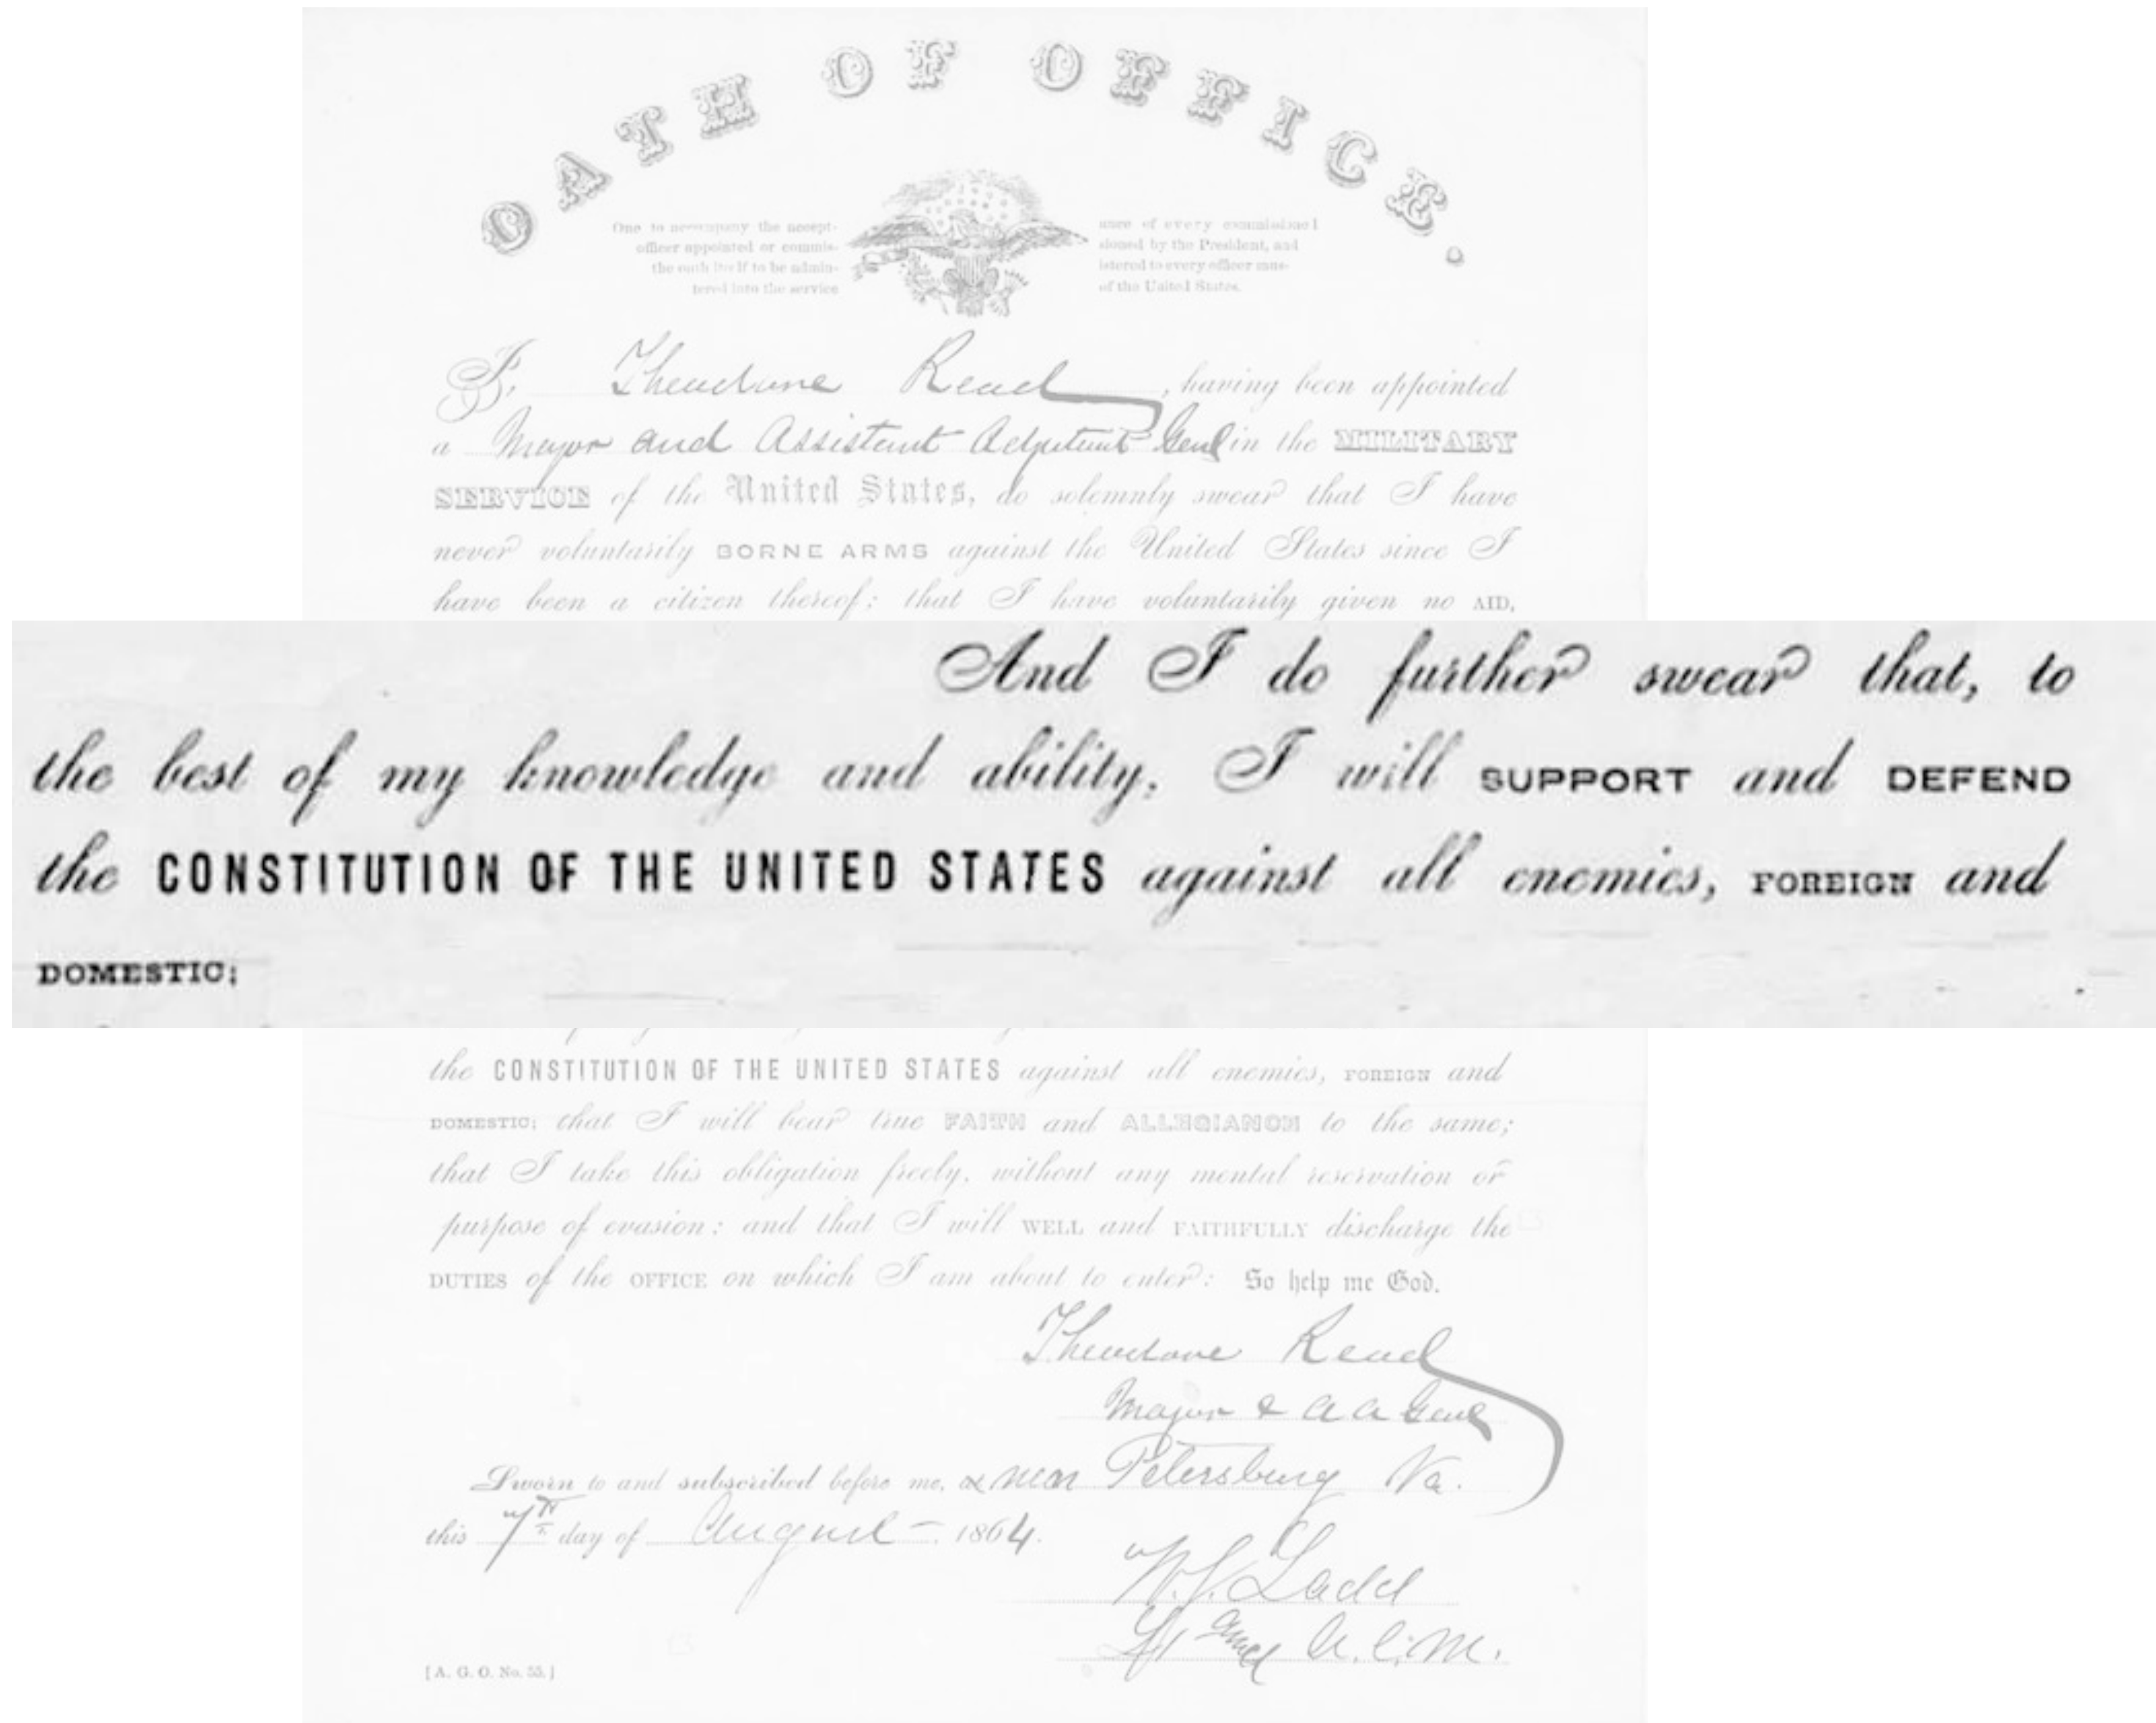 OATH OF OFFICE.
One to accompany the accept-
officer appointed or commis-
the oath itself to be admin-
tered into the service
ance of every commissioned
sioned by the President, and
istered to every officer mus-
of the United States.
I, Theodore Read, having been appointed
a Major and Assistant Adjutant Genl in the MILITARY
SERVICE of the United States, do solemnly swear that I have
never voluntarily BORNE ARMS against the United States since I
have been a citizen thereof; that I have voluntarily given no AID,
And I do further swear that, to
the best of my knowledge and ability, I will SUPPORT and DEFEND
the CONSTITUTION OF THE UNITED STATES against all enemies, FOREIGN and
DOMESTIC;
the CONSTITUTION OF THE UNITED STATES against all enemies, FOREIGN and
DOMESTIC; that I will bear true FAITH and ALLEGIANCE to the same;
that I take this obligation freely, without any mental reservation or
purpose of evasion; and that I will WELL and FAITHFULLY discharge the
DUTIES of the OFFICE on which I am about to enter: So help me God.
Theodore Read
Major & A A Genl
Sworn to and subscribed before me, near Petersburg Va.
this 7th day of August 1864.
W. J. Ladd
Lt A.C.M.
[A. G. O. No. 55.]